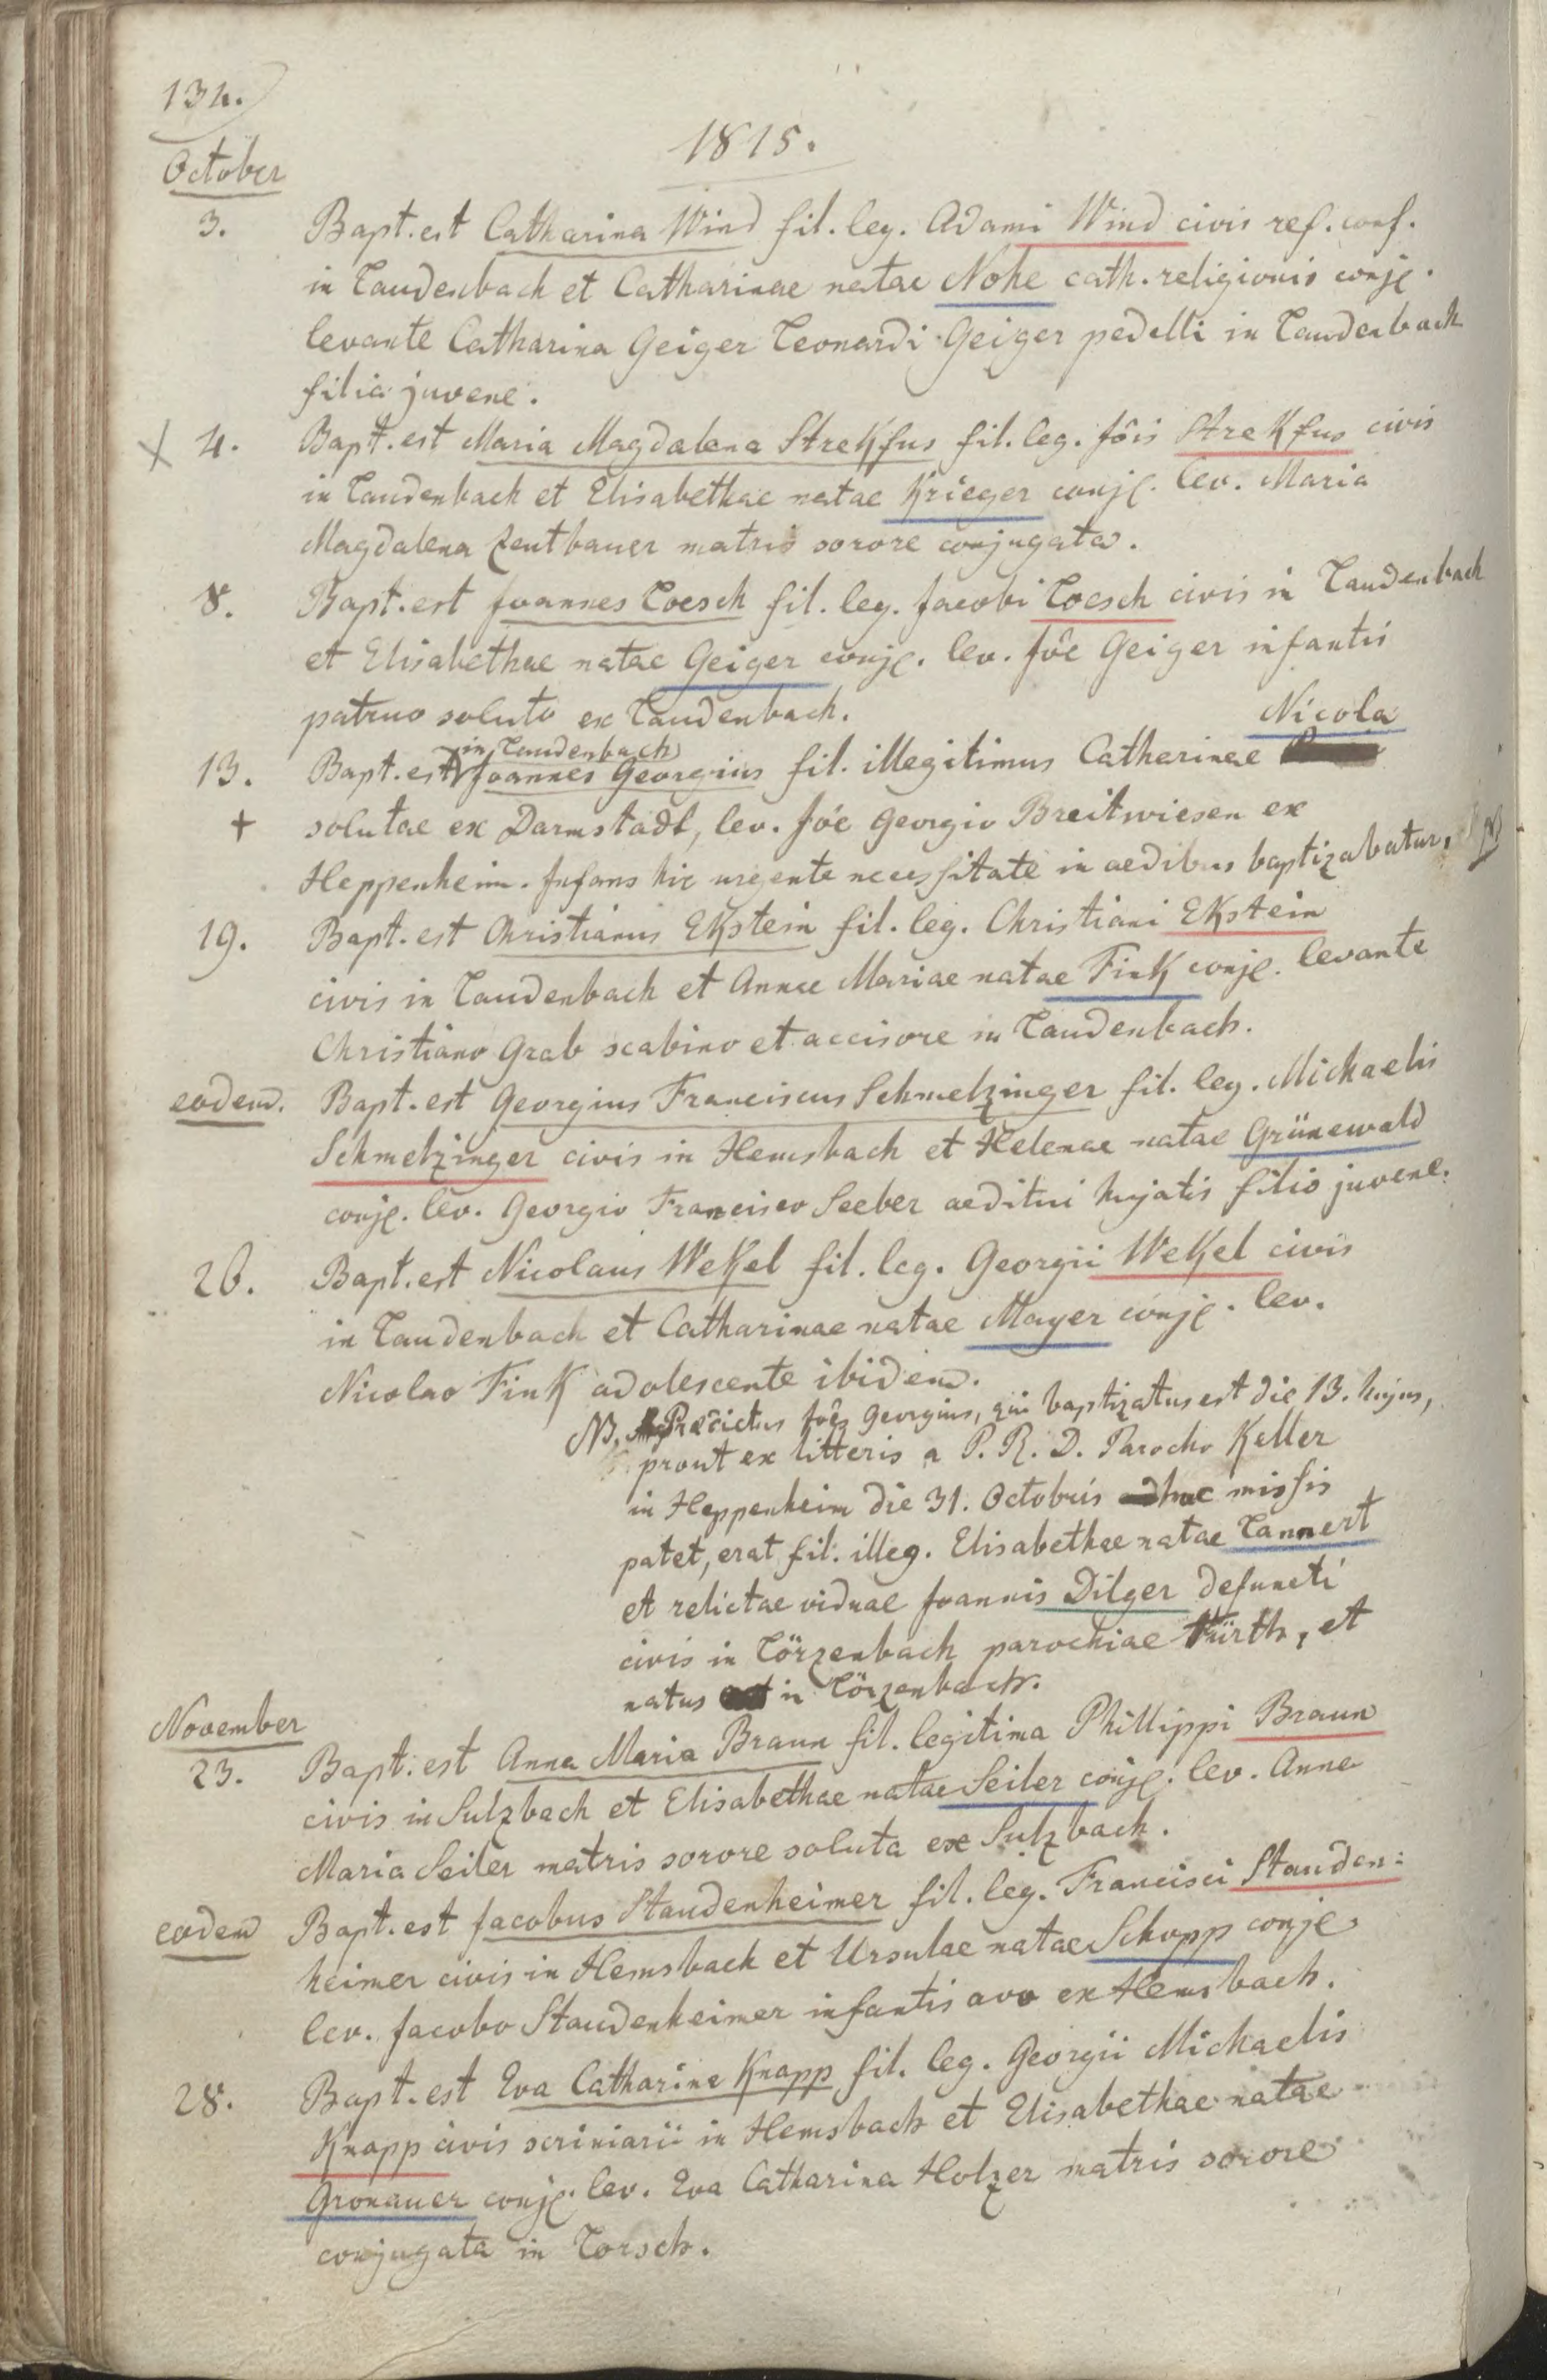 134.
1815.
October
3. Bapt. est Catharina Wind fil. leg. Adami Wind civis ref. conf.
in Laudenbach et Catharinae natae Nohe cath. religionis conjg.
levante Catharina Geiger Leonardi Geiger pedelli in Laudenbach
filia juvene.
4. Bapt. est Maria Magdalena Strekfus fil. leg. Jôis Strekfus civis
in Laudenbach et Elisabethae natae Krieger conjg. lev. Maria
Magdalena Zentbauer matris sorore conjugata.
8. Bapt. est Joannes Loesch fil. leg. Jacobi Loesch civis in Laudenbach
et Elisabethae natae Geiger conjg. lev. Jôe Geiger infantis
patruo soluto ex Laudenbach.
Nicola
in Laudenbach
13. Bapt. est Joannes Georgius fil. illegitimus Catharinae
+ solutae ex Darmstadt, lev. Jôe Georgio Breitwiesen ex
Heppenheim. Infans hic urgente necessitate in aedibus baptizabatur. NB
19. Bapt. est Christianus Ekstein fil. leg. Christiani Ekstein
civis in Laudenbach et Annae Mariae natae Fink conjg. levante
Christiano Grab scabino et accisore in Laudenbach.
eodem. Bapt. est Georgius Franciscus Schmelzinger fil. leg. Michaelis
Schmelzinger civis in Hemsbach et Helenae natae Grünewald
conjg. lev. Georgio Francisco Seeber aeditui hujatis filio juvene.
26. Bapt. est Nicolaus Wekel fil. leg. Georgii Wekel civis
in Laudenbach et Catharinae natae Mayer conjg. lev.
Nicolao Fink adolescente ibidem.
NB. Praedictus Jôes Georgius, qui baptizatus est die 13. hujus,
prout ex litteris a P. R. D. Parocho Keller
in Heppenheim die 31. Octobris huc missis
patet, erat fil. illeg. Elisabethae natae Lannert
et relictae viduae Joannis Dilger defuncti
civis in Lörzenbach parochiae Fürth, et
natus in Lörzenbach.
November
23. Bapt. est Anna Maria Braun fil. legitima Phillippi Braun
civis in Sulzbach et Elisabethae natae Seiler conjg. lev. Anna
Maria Seiler matris sorore soluta ex Sulzbach.
eodem Bapt. est Jacobus Staudenheimer fil. leg. Francisci Stauden:
heimer civis in Hemsbach et Ursulae natae Schopp conjg
lev. Jacobo Staudenheimer infantis avo ex Hemsbach.
28. Bapt. est Eva Catharina Knapp fil. leg. Georgii Michaelis
Knapp civis scriniarii in Hemsbach et Elisabethae natae
Gronauer conjg. lev. Eva Catharina Holzer matris sorore
conjugata in Lorsch.